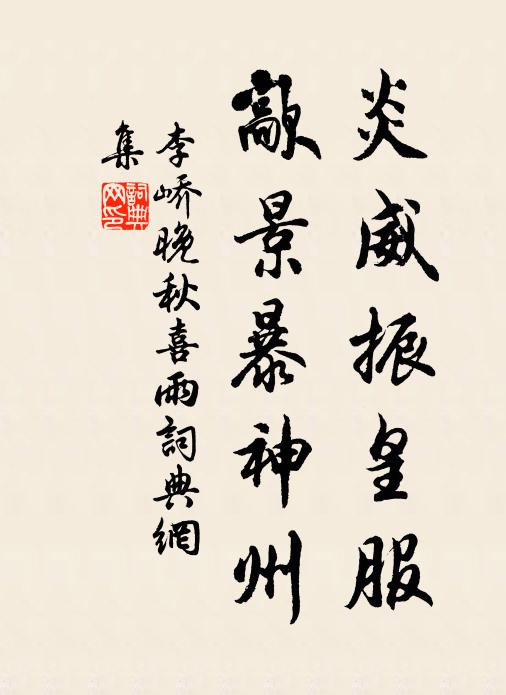 炎威振皇服
歊景暴神州
李峤晚秋喜雨詞典網
集
詞典
网印